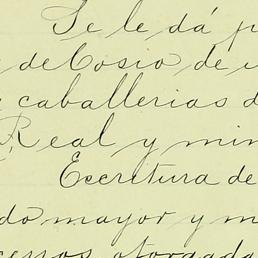 Se le dá p
de Cosio de
caballerias d
Real y min
Escritura de
do mayor y m
otorgada